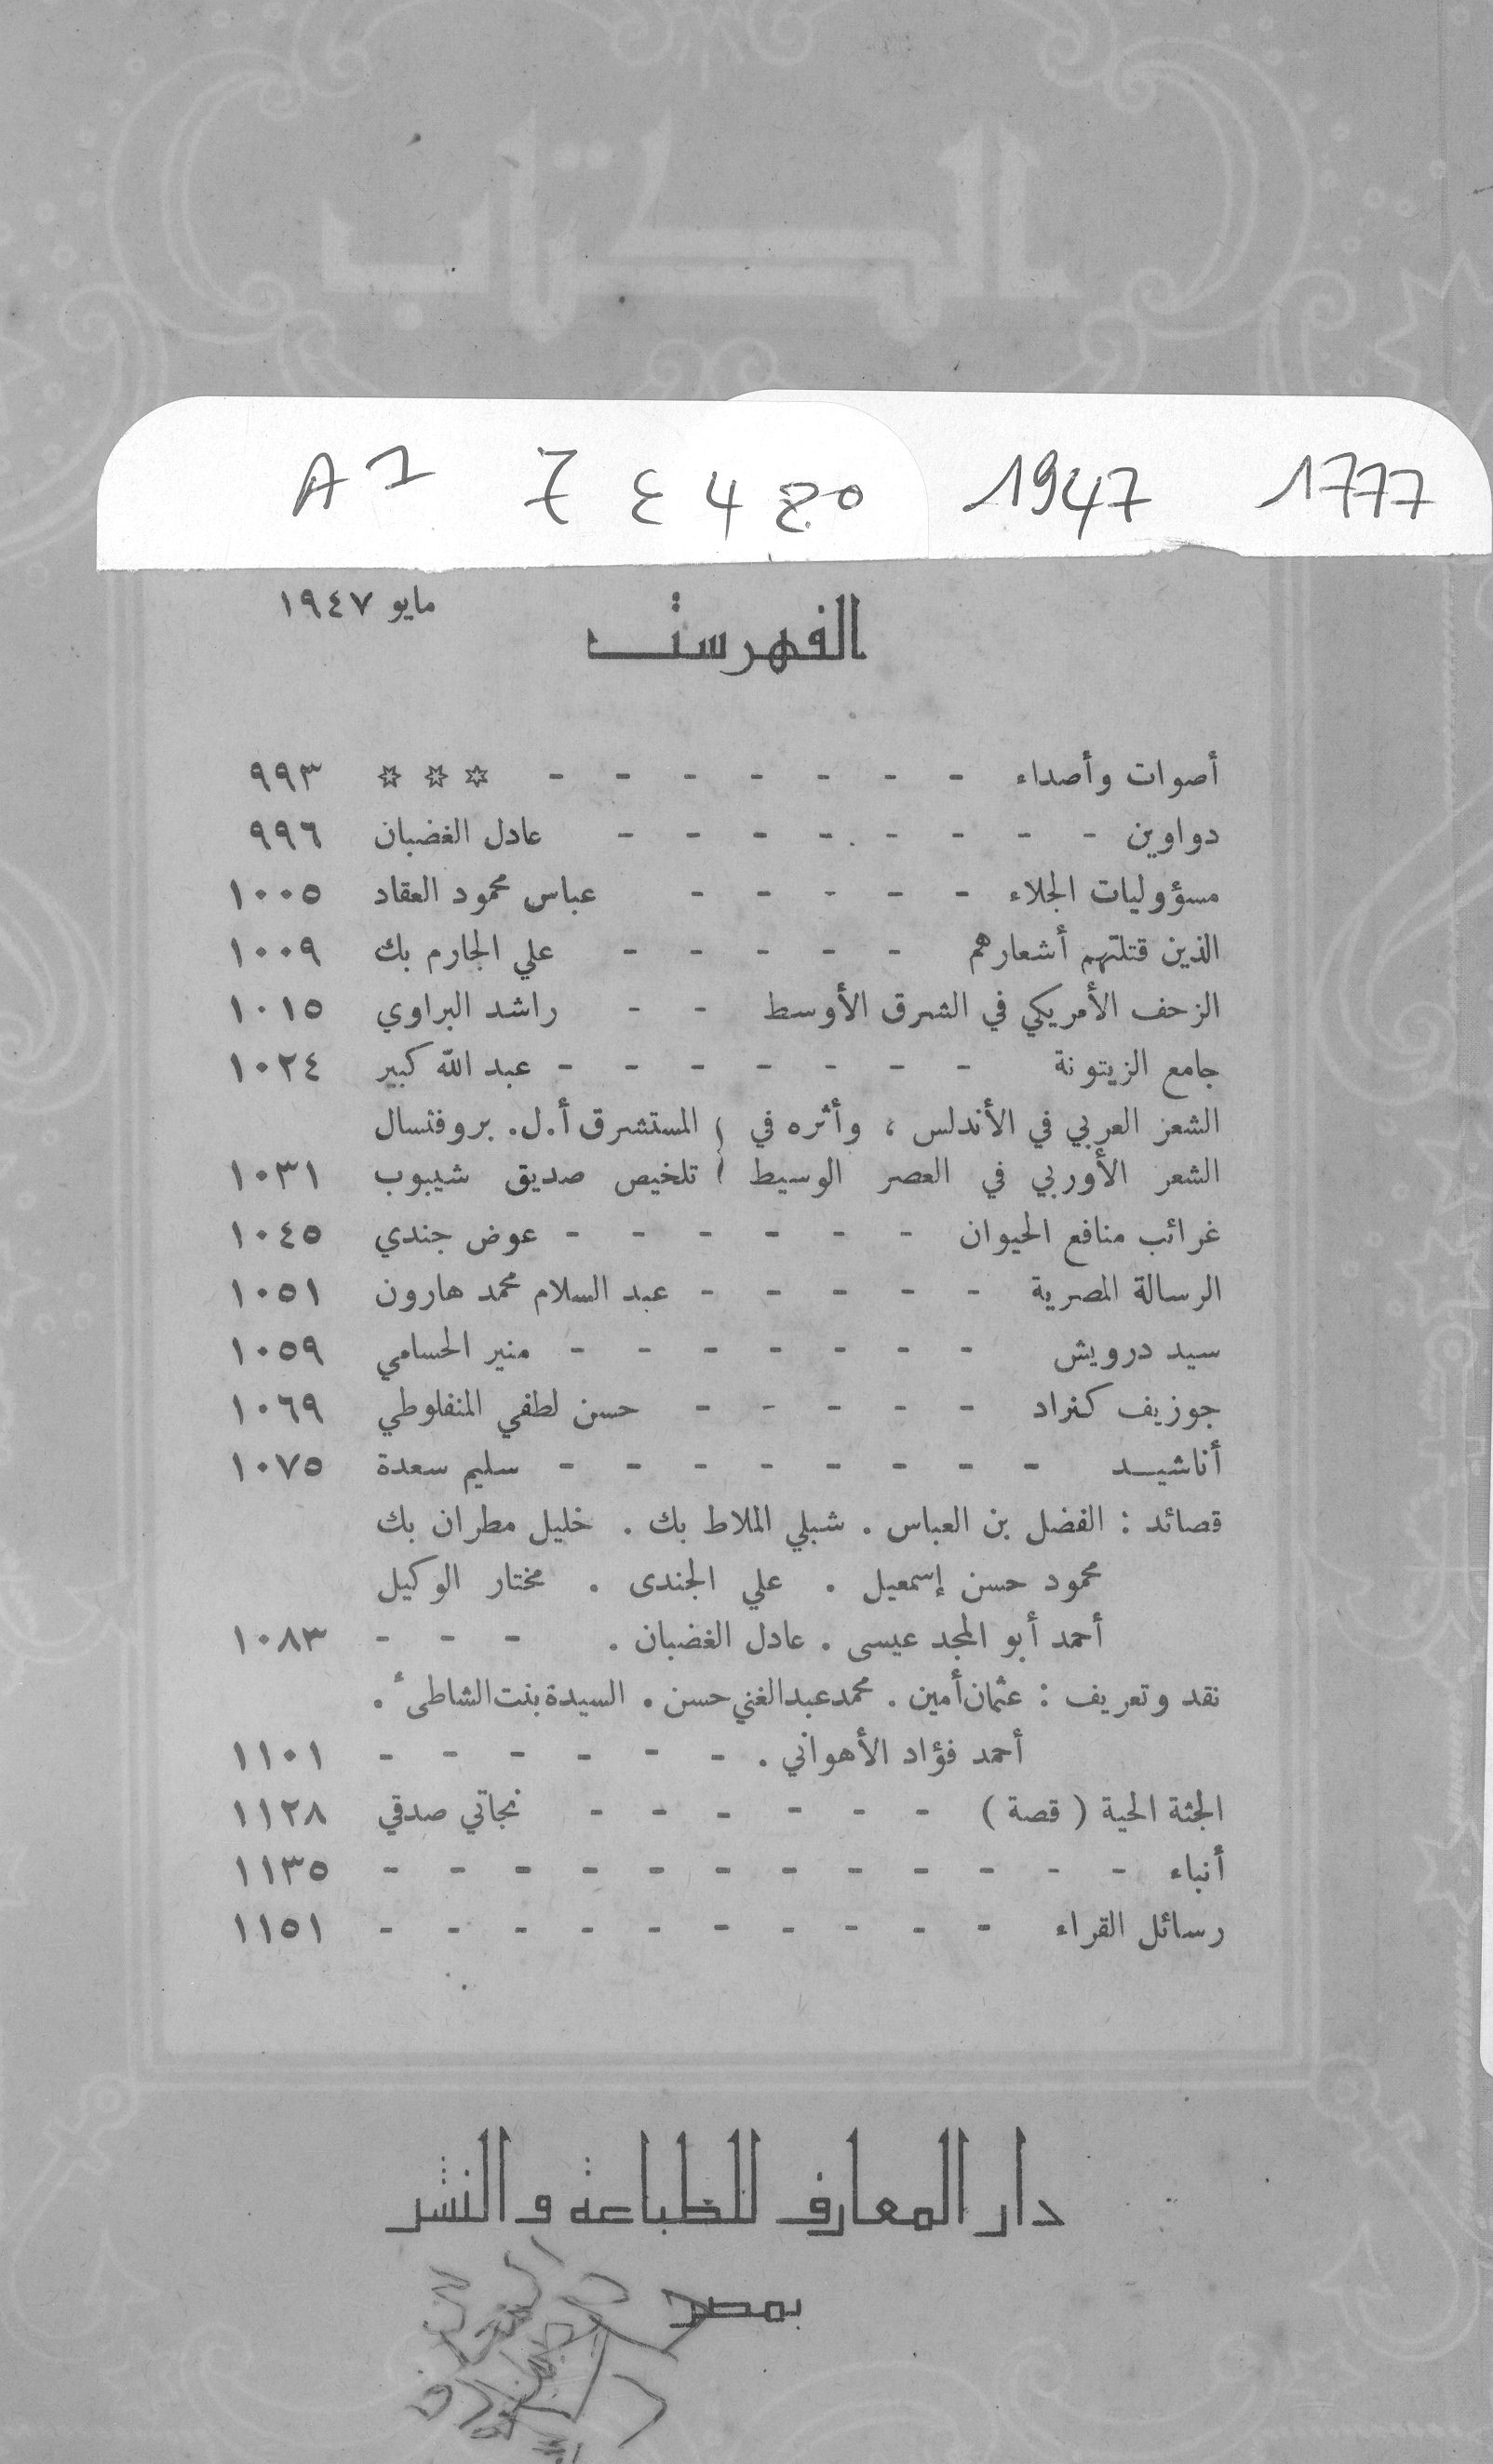 الكتاب
A 1 7 ع 4 ج٥ 1947 1777
مايو ١٩٤٧
الفهرست
أصوات وأصداء - - - - - - - ☆ ☆ ☆ ٩٩٣
دواوين - - - - - - - - عادل الغضبان ٩٩٦
مسؤوليات الجلاء - - - - - عباس محمود العقاد ١٠٠٥
الذين قتلتهم أشعارهم - - - - - علي الجارم بك ١٠٠٩
الزحف الأمريكي في الشرق الأوسط - - راشد البراوي ١٠١٥
جامع الزيتونة - - - - - - - عبد الله كبير ١٠٢٤
الشعر العربي في الأندلس ، وأثره في ) المستشرق أ.ل. بروفنسال
الشعر الأوربي في العصر الوسيط ) تلخيص صديق شيبوب ١٠٣١
غرائب منافع الحيوان - - - - - - عوض جندي ١٠٤٥
الرسالة المصرية - - - - - عبد السلام محمد هارون ١٠٥١
سيد درويش - - - - - - - منير الحسامي ١٠٥٩
جوزيف كنراد - - - - - حسن لطفي المنفلوطي ١٠٦٩
أناشيــد - - - - - - - - سليم سعدة ١٠٧٥
قصائد : الفضل بن العباس . شبلي الملاط بك . خليل مطران بك
محمود حسن إسمعيل . علي الجندى . مختار الوكيل
أحمد أبو المجد عيسى . عادل الغضبان . - - - ١٠٨٣
نقد وتعريف : عثمان أمين . محمد عبد الغني حسن . السيدة بنت الشاطىء .
أحمد فؤاد الأهواني . - - - - - - ١١٠١
الجثة الحية ( قصة ) - - - - - - نجاتي صدقي ١١٢٨
أنباء - - - - - - - - - - - - ١١٣٥
رسائل القراء - - - - - - - - - - ١١٥١
دار المعارف للطباعة والنشر
بمصر